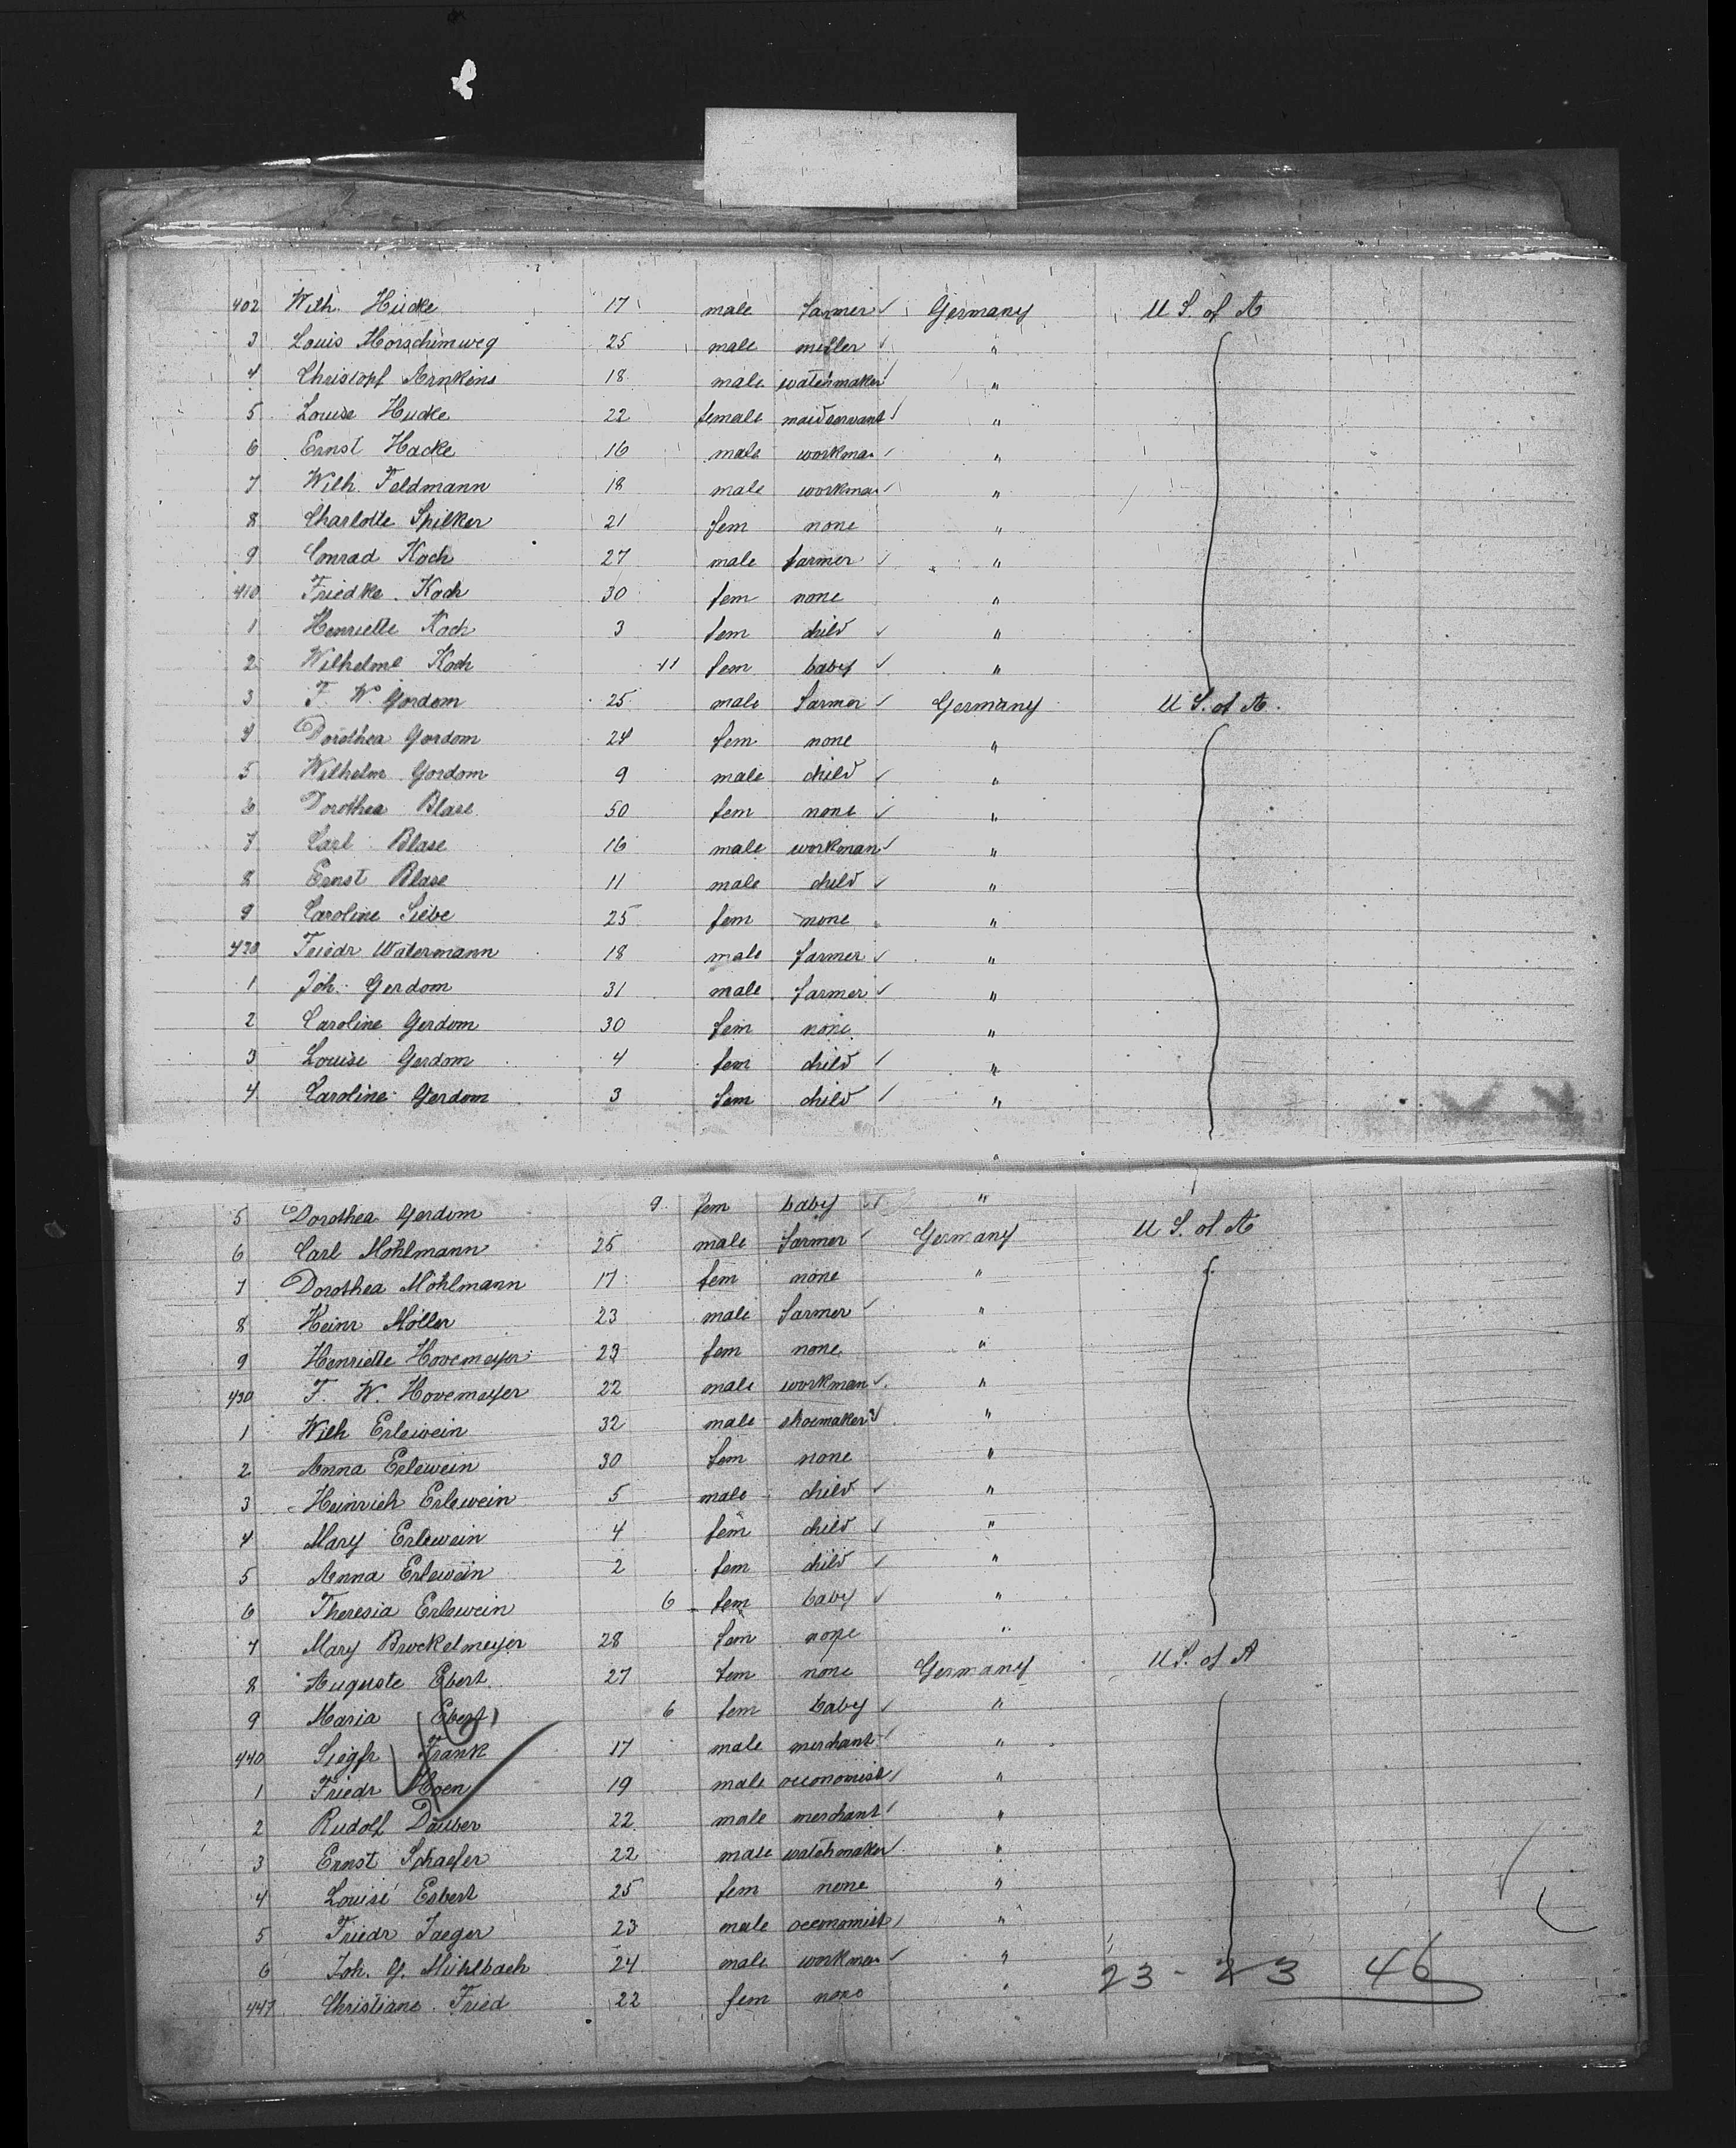 402 Wilh. Hücke 17 male farmer ✓ Germany U S. of A
3 Louis Horschimweg 25 male miller ✓ "
4 Christopf Arnkens 18 male watchmaker ✓ "
5 Louise Hucke 22 female maidservant ✓ "
6 Ernst Hacke 16 male workman ✓ "
7 Wilh. Feldmann 18 male workman ✓ "
8 Charlotte Spilker 21 fem none "
9 Conrad Koch 27 male farmer ✓ "
410 Friedke. Koch 30 fem none "
1 Henriette Koch 3 fem child ✓ "
2 Wilhelme Koch 11 fem baby ✓ "
3 F. W. Gordom 25 male farmer ✓ Germany U S. of A.
4 Dorothea Gordom 24 fem none "
5 Wilhelm Gordom 9 male child ✓ "
6 Dorothea Blase 50 fem none ✓ "
7 Carl Blase 16 male workman ✓ "
8 Ernst Blase 11 male child ✓ "
9 Caroline Siebe 25 fem none "
420 Friedr Watermann 18 male farmer ✓ "
1 Joh. Gerdom 31 male farmer ✓ "
2 Caroline Gerdom 30 fem none "
3 Louise Gerdom 4 fem child ✓ "
4 Caroline Gerdom 3 fem child ✓ "
5 Dorothea Gerdom 9 fem baby ✓ "
6 Carl Möhlmann 25 male farmer ✓ Germany U S. of A
7 Dorothea Möhlmann 17 fem none "
8 Heinr Möller 23 male farmer ✓ "
9 Henriette Hovemeyer 23 fem none "
430 F. W. Hovemeyer 22 male workman ✓ "
1 Wilh Erlewein 32 male shoemaker ✓ "
2 Anna Erlewein 30 fem none "
3 Heinrich Erlewein 5 male child ✓ "
4 Mary Erlewein 4 fem child ✓ "
5 Anna Erlewein 2 fem child ✓ "
6 Theresia Erlewein 6 fem baby ✓ "
7 Mary Brockelmeyer 28 fem none "
8 Auguste Ebert 27 fem none Germany U S. of A
9 Maria Ebert 6 fem baby ✓ "
440 Siegfr Frank 17 male merchant ✓ "
1 Friedr Hoen 19 male oeconomist ✓ "
2 Rudolf Dauber 22 male merchant ✓ "
3 Ernst Schaefer 22 male watchmaker ✓ "
4 Louise Erbert 25 fem none "
5 Friedr Jaeger 23 male oeconomist ✓ "
6 Joh. G. Mühlbach 24 male workman ✓ "
447 Christiane Fried 22 fem none "
23 - 23 46